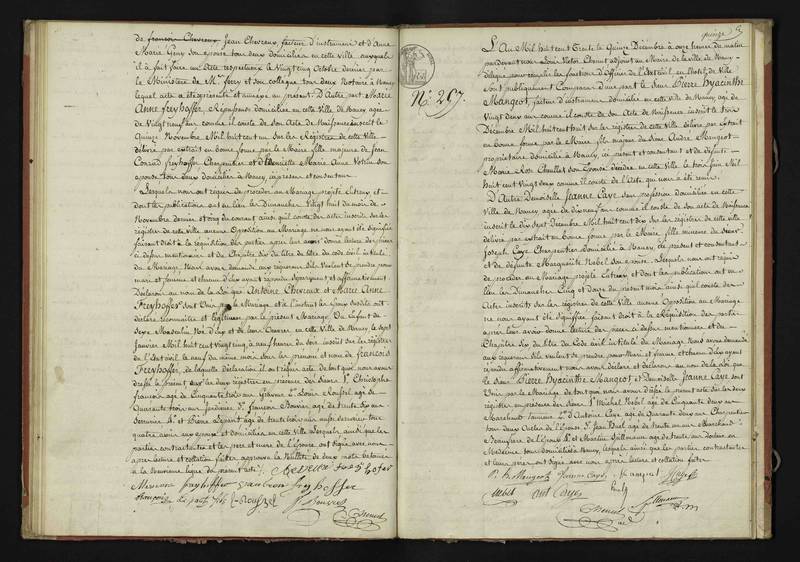 de françois Chevreux Jean Chevreux, facteur d'instrument et d'Anne
Marie Geny son épouse tous deux domiciliés en cette ville auxquels
il a fait faire acte respectueux le Vingt cinq Octobre dernier par
le Ministère de Me frery et son collègue tous deux Notaires à Nancy
lequel acte a été présenté et annexé au présent. D'Autre part Marie
Anne Freyhoffer, Repasseuse domiciliée en cette Ville de Nancy agée
de Vingt neuf ans comme il conste de son Acte de Naissance inscrit le
Quinze Novembre Mil huit cent un sur les Registres de cette Ville
délivré par extrait en bonne forme par le Maire fille majeure de Jean
Conrad freyhoffer Charpentier et de Demoiselle Marie Anne son
épouse tous deux domiciliés à Nancy ici présens et consentans.
Lesquels nous ont requis de procéder au Mariage projetté entre eux et
dont les publications ont eu lieu les Dimanches Vingt huit du mois de
Novembre dernier et cinq du courant ainsi qu'il conste des actes inscrits sur les
régistres de cette ville aucune Opposition au Mariage ne nous ayant été signifiée
faisant droit à la réquisition des parties après leur avoir donné lecture des pièces
ci dessus mentionnées et du Chapitre six du titre du code civil intitulé
du Mariage Nous avons demandé aux requérans s'ils veulent se prendre pour
mari et femme et chacun d'eux ayant répondu séparément et affirmativement
Déclarons au nom de la Loi que Antoine Chevreux et Marie Anne
Freyhoffer sont Unis par le Mariage et à l'instant les Epoux susdits ont
déclaré reconnaitre et légitimer par le présent Mariage. Un enfant du
Sexe Masculin Né d'Eux et de leurs Oeuvres en cette Ville de Nancy le sept
Janvier Mil huit cent Vingt cinq, à neuf heures du soir inscrit sur les régistres
de l'Etat civil le neuf du même mois sous les prénoms et nom de françois
Freyhoffer, de laquelle déclaration ils ont requis acte de tout quoi nous avons
dressé le présent sur les deux registres en présence des Sieurs 1° Christophe
françois agé de Cinquante trois ans 2° Louis Roussel agé de
Quarante trois ans Jardinier 3° François Bouvier agé de trente six ans
Serrurier 4° et Pierre agé de trente trois ans aussi Serrurier tous
quatre amis aux époux et domiciliés en cette Ville Lesquels ainsi que les
parties contractantes et les père et mère de l'Epouse ont signé avec nous
après lecture et collation faites approuvé la Nullité de deux mots raturés
à la première ligne du présent acte.
Chevreux
freyhoffer
L. Roussel
F. Bouvier
Chenut
quinze
N° 297.
L'An Mil huit cent Trente le Quinze Décembre à onze heures du matin
pardevant nous Louis Victor Chenut adjoint au Maire de la ville de Nancy
délégué pour remplir les fonctions d'officier de l'Etat civil en l'hotel de Ville
sont publiquement Comparus d'une part le Sieur Pierre Hyacinthe
Mangeot, facteur d'instrumens domicilié en cette ville de Nancy agé de
Vingt deux ans comme il conste de son Acte de Naissance inscrit le trois
Décembre Mil huit cent huit sur les registres de cette ville délivré par Extrait
en bonne forme par le Maire fils majeur du Sieur André Mangeot
propriétaire domicilié à Nancy, ici présent et consentant et de défunte
Marie Rose Choullet son Epouse décédée en cette ville le trois Juin Mil
huit cent Vingt deux comme il conste de l'Acte qui nous a été remis.
D'Autre Demoiselle Jeanne Caye sans profession domiciliée en cette
Ville de Nancy agée de dix neuf ans comme il conste de son acte de Naissance
inscrit le dix sept Décembre Mil huit cent dix sur les régistres de cette ville
délivré par extrait en bonne forme par le Maire fille mineure du Sieur
Joseph Caye Charpentier domicilié à Nancy, ici présent et consentant
et de défunte Marguerite Nabel son épouse. Lesquels nous ont requis
de procéder au Mariage projetté entre eux et dont les publications ont eu
lieu les Dimanches Cinq et douze du présent mois ainsi qu'il conste des
Actes inscrits sur les régistres de cette Ville aucune Opposition au Mariage
ne nous ayant été signifiée faisant droit à la Réquisition des parties
après leur avoir donné lecture des pièces ci dessus mentionnées et du
Chapitre six du titre du Code civil intitulé du Mariage Nous avons demandé
aux requérans s'ils veulent se prendre pour Mari et femme et chacun d'eux ayant
répondu affirmativement nous avons déclaré et déclarons au nom de la Loi que
le Sieur Pierre Hyacinthe Mangeot et Demoiselle Jeanne Caye sont
Unis par le Mariage de tout quoi nous avons dressé le présent acte sur les deux
régistres en présence des Sieurs 1° Michel Nabel agé de Cinquante deux ans
Marechand 2° Antoine Caye agé de Quarante deux ans Charpentier
tous deux Oncles de l'Epouse 3° Jean Huel agé de trente un ans Marchand
Beaufrère de l'Epoux 4° et Martin Guillemain agé de trente ans docteur en
Médecine tous domiciliés à Nancy, lesquels ainsi que les parties contractantes
et leurs pères ont signé avec nous après lecture et collation faites
P. h Mangeot Jeanne Caye Mangeot
Nabel ant Caye Huel
Chenut